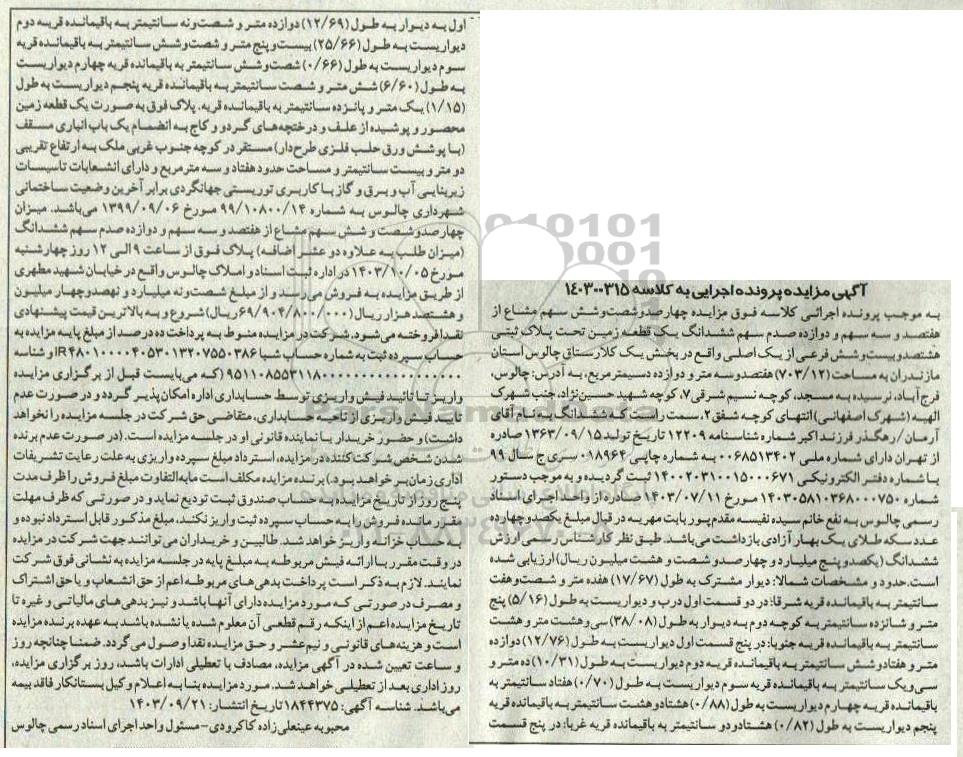 آگهی مزایده پرونده اجرایی به کلاسه ۱۴۰۳۰۰۳۱۵
به موجب پرونده اجرائی کلاسه فوق مزایده چهارصدوشصت‌وشش سهم مشاع از
هفتصد و سه سهم و دوازده صدم سهم ششدانگ یک قطعه زمین تحت پلاک ثبتی
هشتصدوبیست‌وشش فرعی از یک اصلی واقع در بخش یک کلارستاق چالوس استان
مازندران به مساحت (۷۰۳/۱۲) هفتصدوسه متر و دوازده دسیمترمربع، به آدرس: چالوس،
فرج‌آباد، نرسیده به مسجد، کوچه نسیم شرقی۷، کوچه شهید حسین‌نژاد، جنب شهرک
الهیه (شهرک اصفهانی) انتهای کوچه شفق۲، سمت راست که ششدانگ به نام آقای
آرمان/رهگذر فرزند اکبر شماره شناسنامه ۱۲۲۰۹ تاریخ تولد ۱۳۶۳/۰۹/۱۵ صادره
از تهران دارای شماره ملی ۰۰۶۸۵۱۳۴۰۲ به شماره چاپی ۰۱۸۹۶۴ سری ج سال ۹۹
با شماره دفتر الکترونیکی ۱۴۰۰۲۰۳۱۰۰۱۵۰۰۰۶۷۱ ثبت گردیده و به موجب دستور
شماره ۱۴۰۳۰۵۸۱۰۳۶۸۰۰۰۷۵۰ مورخ ۱۴۰۳/۰۷/۱۱ صادره از واحد اجرای اسناد
رسمی چالوس به نفع خانم سیده نفیسه مقدم‌پور بابت مهریه در قبال مبلغ یکصدوچهارده
عدد سکه طلای یک بهار آزادی بازداشت می‌باشد. طبق نظر کارشناس رسمی ارزش
ششدانگ (یکصدوپنج میلیارد و چهارصدو شصت و هشت میلیون ریال) ارزیابی شده
است.حدود و مشخصات شمالا: دیوار مشترک به طول (۱۷/۶۷) هفده متر و شصت‌وهفت
سانتیمتر به باقیمانده قریه شرقا: در دو قسمت اول درب و دیواریست به طول (۵/۱۶) پنج
متر و شانزده سانتیمتر به کوچه دوم به دیوار به طول (۳۸/۰۸) سی‌وهشت متر و هشت
سانتیمتر به باقیمانده قریه جنوبا: در پنج قسمت اول دیواریست به طول (۱۲/۷۶) دوازده
متر و هفتادوشش سانتیمتر به باقیمانده قریه دوم دیواریست به طول (۱۰/۳۱) ده متر و
سی‌ویک سانتیمتر به باقیمانده قریه سوم دیواریست به طول (۰/۷۰) هفتاد سانتیمتر به
باقیمانده قریه چهارم دیواریست به طول (۰/۸۸) هشتادوهشت سانتیمتر به باقیمانده قریه
پنجم دیواریست به طول (۰/۸۲) هشتادودو سانتیمتر به باقیمانده قریه غربا: در پنج قسمت
اول به دیوار به طول (۱۲/۶۹) دوازده متر و شصت‌ونه سانتیمتر به باقیمانده قریه دوم
دیواریست به طول (۲۵/۶۶) بیست‌وپنج متر و شصت‌وشش سانتیمتر به باقیمانده قریه
سوم دیواریست به طول (۰/۶۶) شصت‌وشش سانتیمتر به باقیمانده قریه چهارم دیواریست
به طول (۶/۶۰) شش متر و شصت سانتیمتر به باقیمانده قریه پنجم دیواریست به طول
(۱/۱۵) یک متر و پانزده سانتیمتر به باقیمانده قریه. پلاک فوق به صورت یک قطعه زمین
محصور و پوشیده از علف و درختچه‌های گردو و کاج به انضمام یک باب انباری مسقف
(با پوشش ورق حلب فلزی طرح‌دار) مستقر در کوچه جنوب غربی ملک به ارتفاع تقریبی
دو متر و بیست سانتیمتر و مساحت حدود هفتاد و سه مترمربع و دارای انشعابات تاسیسات
زیربنایی آب و برق و گاز با کاربری توریستی جهانگردی برابر آخرین وضعیت ساختمانی
شهرداری چالوس به شماره ۹۹/۱۰۸۰۰/۱۴ مورخ ۱۳۹۹/۰۹/۰۶ می‌باشد. میزان
چهارصدوشصت و شش سهم مشاع از هفتصد و سه سهم و دوازده صدم سهم ششدانگ
(میزان طلب به علاوه دو عشر اضافه) پلاک فوق از ساعت ۹ الی ۱۲ روز چهارشنبه
مورخ ۱۴۰۳/۱۰/۰۵ در اداره ثبت اسناد و املاک چالوس واقع در خیابان شهید مطهری
از طریق مزایده به فروش می‌رسد و از مبلغ شصت‌ونه میلیارد و نهصدوچهار میلیون
و هشتصد هزار ریال (۶۹/۹۰۴/۸۰۰/۰۰۰ریال) شروع و به بالاترین قیمت پیشنهادی
نقدا فروخته می‌شود. شرکت در مزایده منوط به پرداخت ده درصد از مبلغ پایه مزایده به
حساب سپرده ثبت به شماره حساب شبا IR۴۸۰۱۰۰۰۰۴۰۵۳۰۱۳۲۰۷۵۵۰۳۸۶ و شناسه
(که می‌بایست قبل از برگزاری مزایده
واریز تا تائید فیش واریزی توسط حسابداری اداره امکان‌پذیر گردد و در صورت عدم
تایید فیش واریزی از ناحیه حسابداری، متقاضی حق شرکت در جلسه مزایده را نخواهد
داشت) و حضور خریدار یا نماینده قانونی او در جلسه مزایده است. (در صورت عدم برنده
شدن شخص شرکت‌کننده در مزایده، استرداد مبلغ سپرده واریزی به علت رعایت تشریفات
اداری زمان‌بر خواهد بود.) برنده مزایده مکلف است مابه‌التفاوت مبلغ فروش را ظرف مدت
پنج روز از تاریخ مزایده به حساب صندوق ثبت تودیع نماید و در صورتی که ظرف مهلت
مقرر مانده فروش را به حساب سپرده ثبت واریز نکند، مبلغ مذکور قابل استرداد نبوده و
به حساب خزانه واریز خواهد شد. طالبین و خریداران می‌توانند جهت شرکت در مزایده
در وقت مقرر با ارائه فیش مربوطه به مبلغ پایه در جلسه مزایده به نشانی فوق شرکت
نمایند. لازم به ذکر است پرداخت بدهی‌های مربوطه اعم از حق انشعاب و یا حق اشتراک
و مصرف در صورتی که مورد مزایده دارای آنها باشد و نیز بدهی‌های مالیاتی و غیره تا
تاریخ مزایده اعم از اینکه رقم قطعی آن معلوم شده یا نشده باشد به عهده برنده مزایده
است و هزینه‌های قانونی و نیم عشر و حق مزایده نقدا وصول می‌گردد. ضمنا چنانچه روز
و ساعت تعیین شده در آگهی مزایده، مصادف با تعطیلی ادارات باشد، روز برگزاری مزایده،
روز اداری بعد از تعطیلی خواهد شد. مورد مزایده بنا به اعلام وکیل بستانکار فاقد بیمه
می‌باشد. شناسه آگهی: ۱۸۴۴۳۷۵ تاریخ انتشار: ۱۴۰۳/۰۹/۲۱
محبوبه عینعلی‌زاده کاکرودی-مسئول واحد اجرای اسناد رسمی چالوس